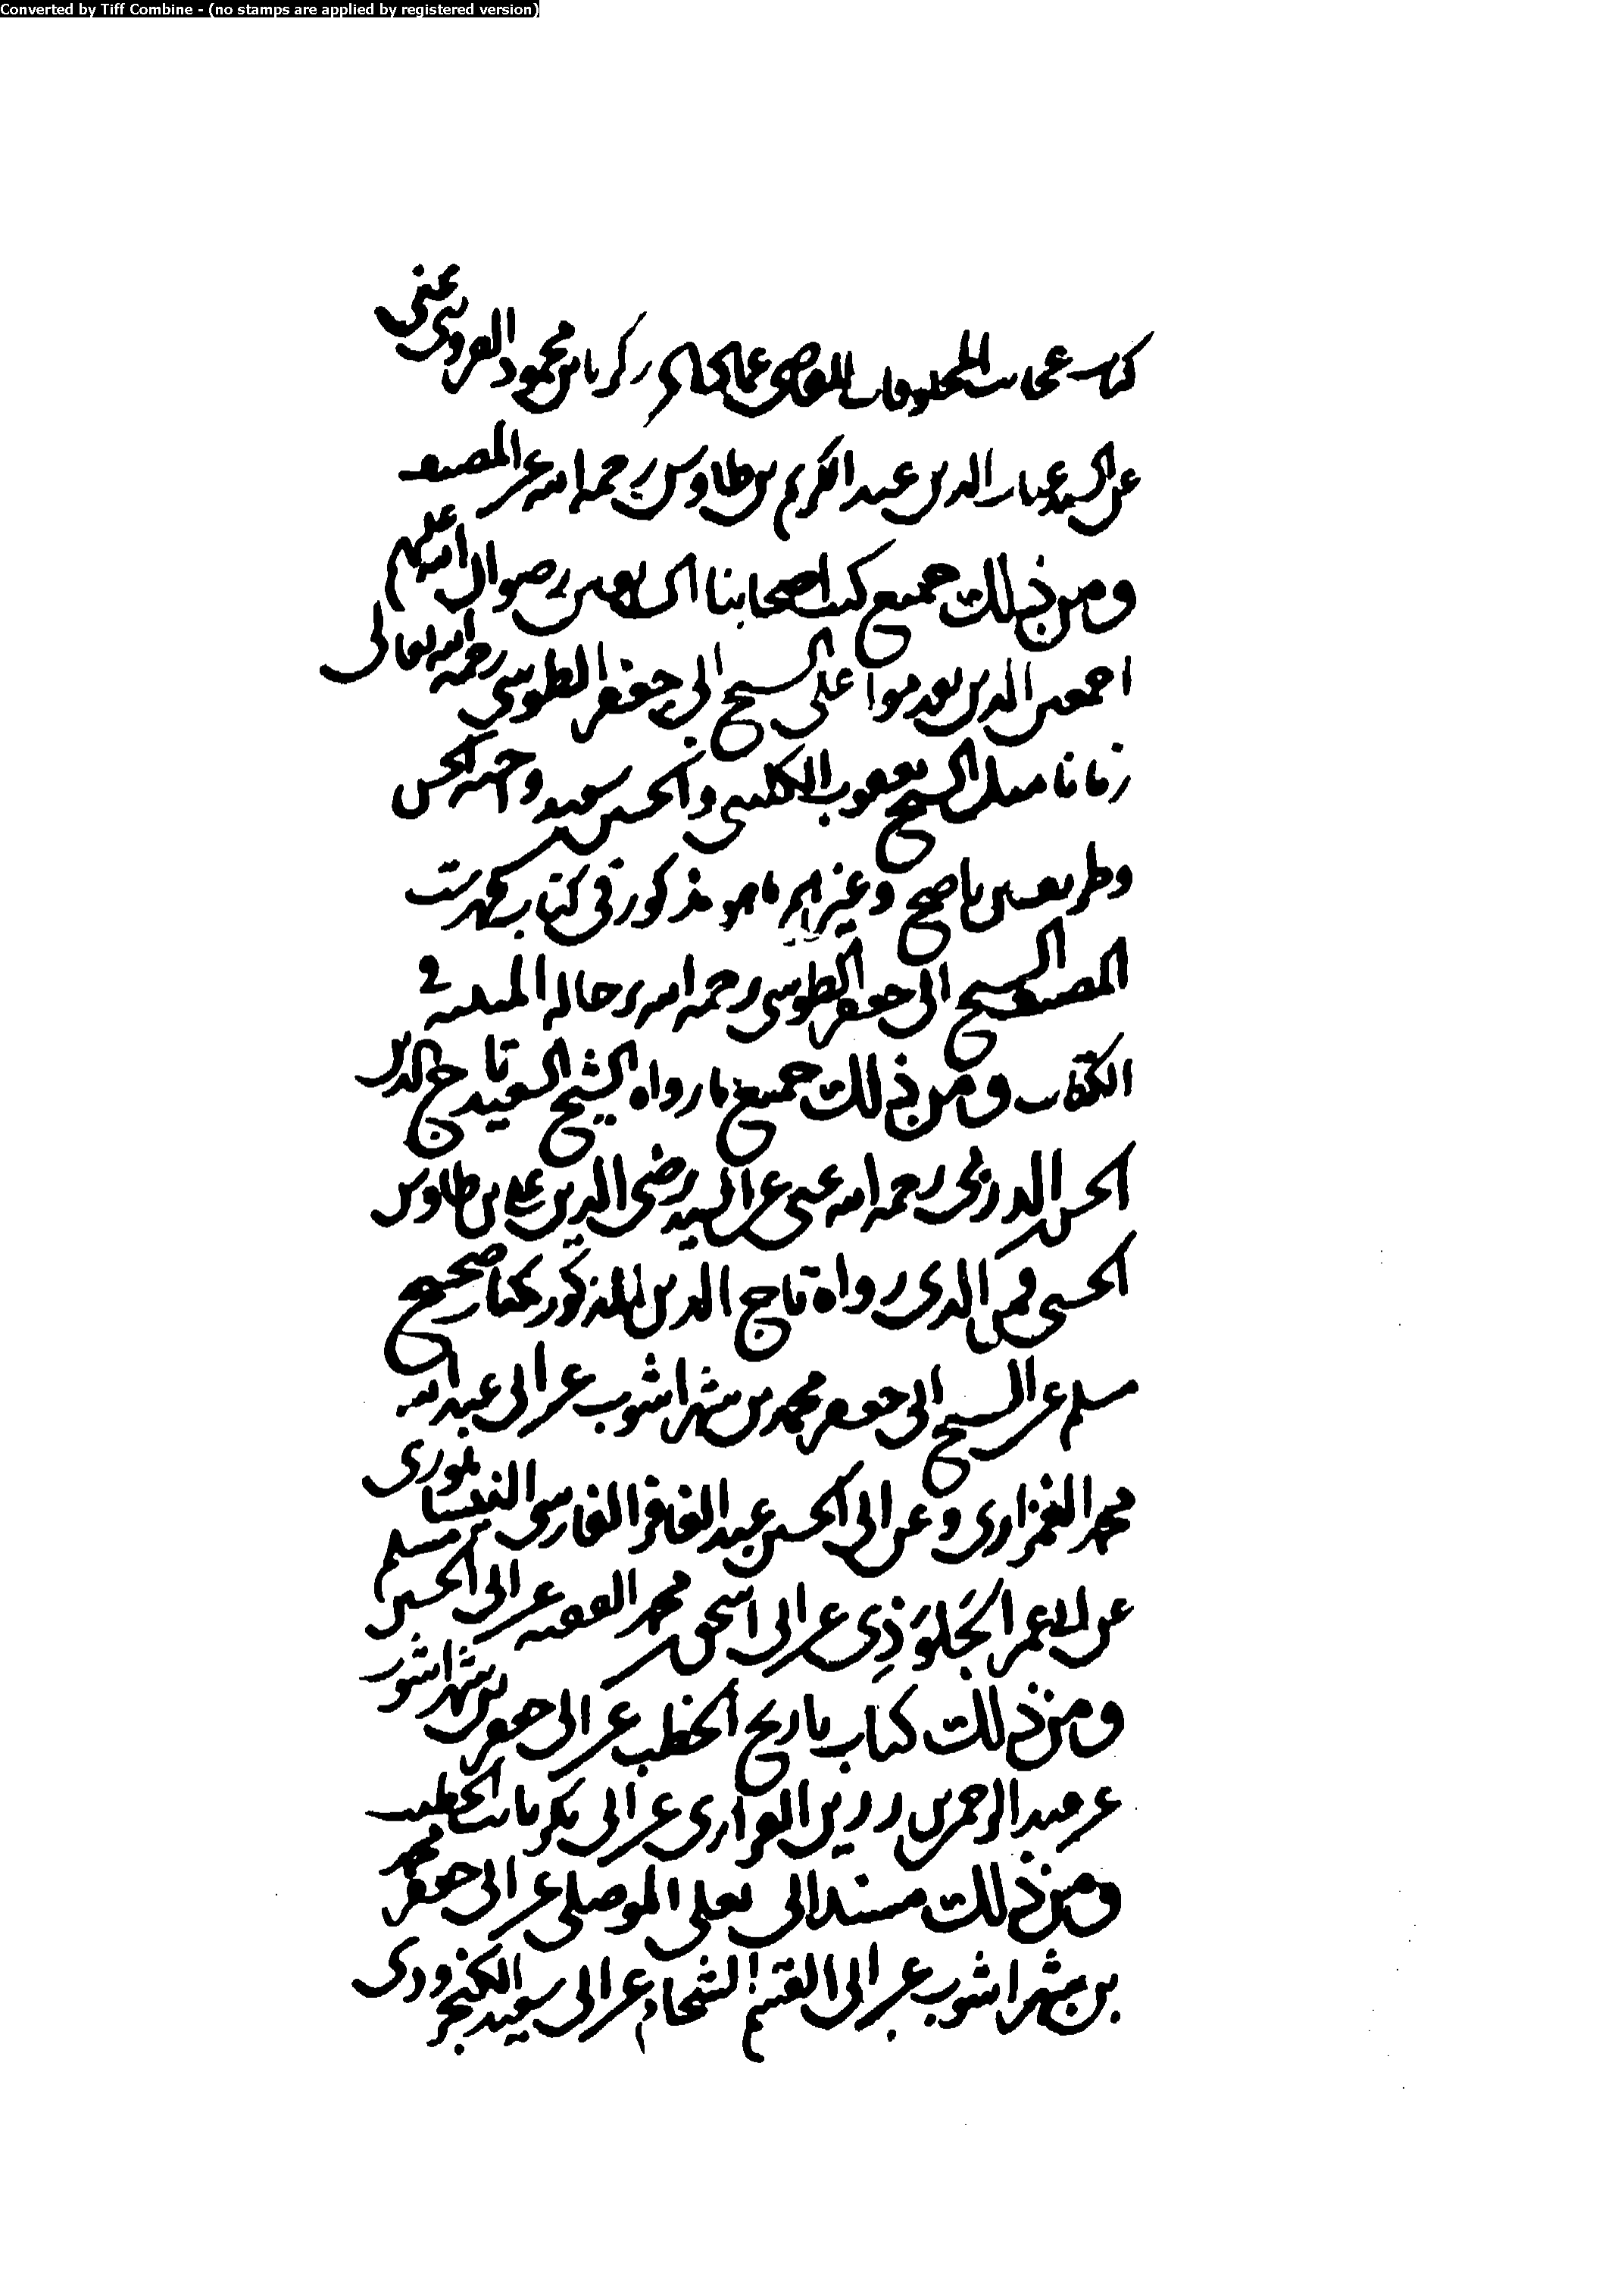 Converted by Tiff Combine - (no stamps are applied by registered version)
كتاب عجائب المخلوقات للقاضي عماد الدين زكريا بن محمود القزويني عني
عن السيد غياث الدين عبد الكريم بن طاوس رحمه الله عن المصنف
ومن ذلك جميع كتب اصحابنا السابقين رضوان الله عليهم
اجمعين الذين تقدموا على الشيخ ابي جعفر الطوسي رحمه الله تعالى
زمانا مثل الشيخ يعقوب الكليني والحسين بن سعيد واخيه الحسن
وطريف بن ناصح وغيرهم ما هو مذكور في كتاب فهرست
المصنف الشيخ ابي جعفر الطوسي رحمه الله برجاله المثبتة في
الكتاب ومن ذلك جميع ما رواه الشيخ السعيد تاج الدين
الحسن بن الدربي رحمه الله عني عن السيد رضي الدين علي بن طاوس
الحسني فمن الذي رواه تاج الدين المذكور كتاب صحيح
مسلم عن الشيخ ابي جعفر محمد بن شهراشوب عن ابي عبد الله
محمد الفراوي وعن ابي الحسين عبد الغافر الفارسي النيسابوري
عن ابي عمر الجلوذي عن ابي اسحق بن محمد الفقيه عن ابي الحسين بن مسلم
ومن ذلك كتاب تاريخ الخطيب عن ابي جعفر بن شهراشوب
عن عبد الرحمن بن زريق القزاز عن ابي بكر ثابت الخطيب
ومن ذلك مسند ابي يعلى الموصلي عن ابي جعفر محمد
بن شهراشوب عن ابي القسم الشحام عن ابي سعيد الكنجرودي